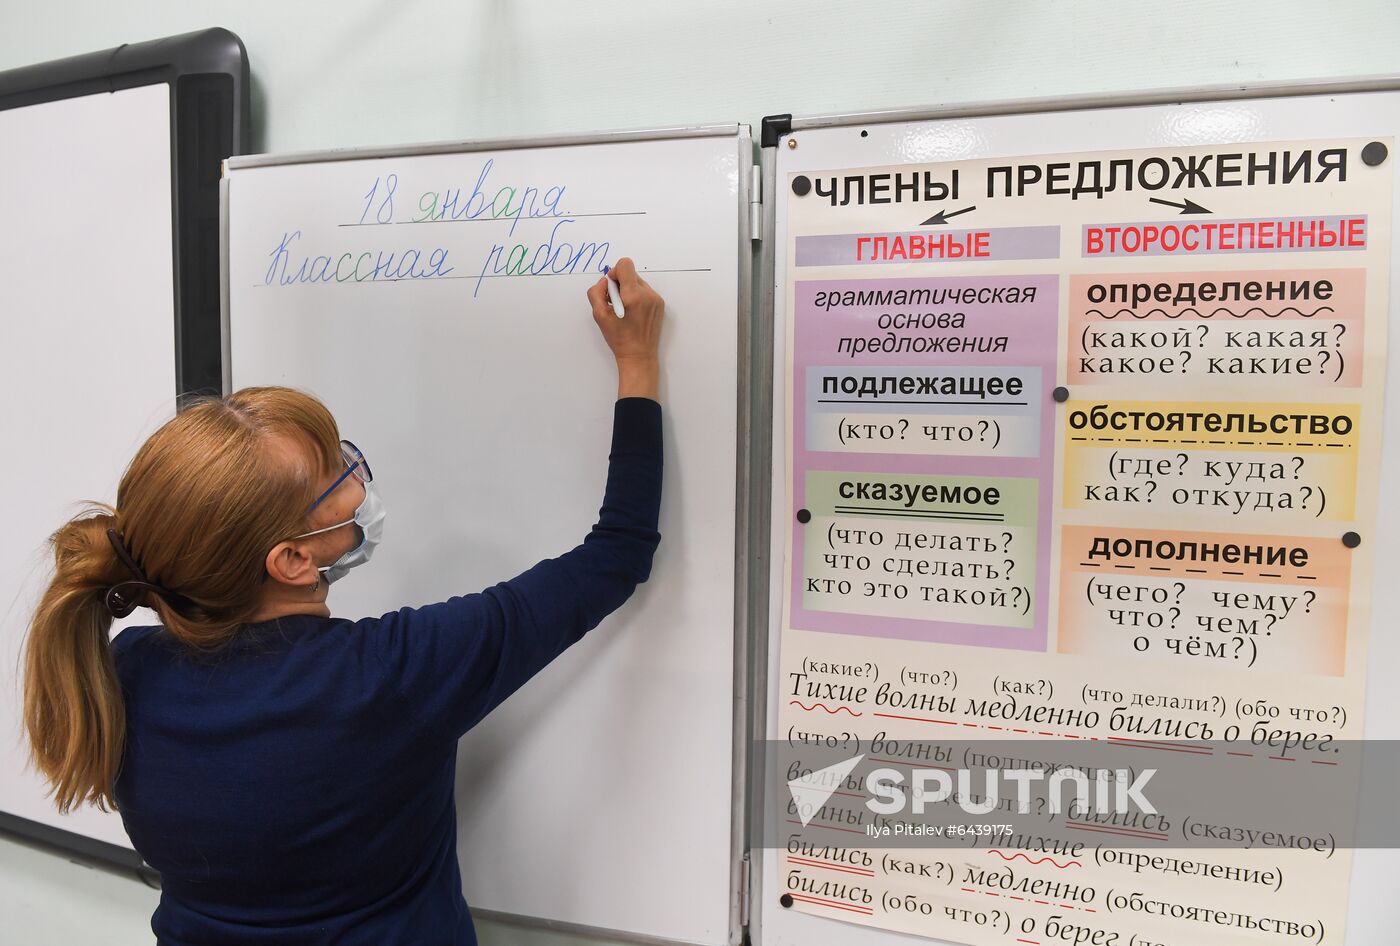 18 января.
Классная работ
ЧЛЕНЫ ПРЕДЛОЖЕНИЯ
ГЛАВНЫЕ
грамматическая
основа
предложения
подлежащее
(кто? что?)
сказуемое
(что делать?
что сделать?
кто это такой?)
ВТОРОСТЕПЕННЫЕ
определение
(какой? какая?
какое? какие?)
обстоятельство
(где? куда?
как? откуда?)
дополнение
(чего? чему?
что? чем?
о чём?)
(какие?) (что?) (как?) (что делали?) (обо что?)
Тихие волны медленно бились о берег.
(что?) волны (подлежащее)
волны (что делали?) бились (сказуемое)
волны (какие?) тихие (определение)
бились (как?) медленно (обстоятельство)
бились (обо что?) о берег
SPUTNIK
Ilya Pitalev #6439175